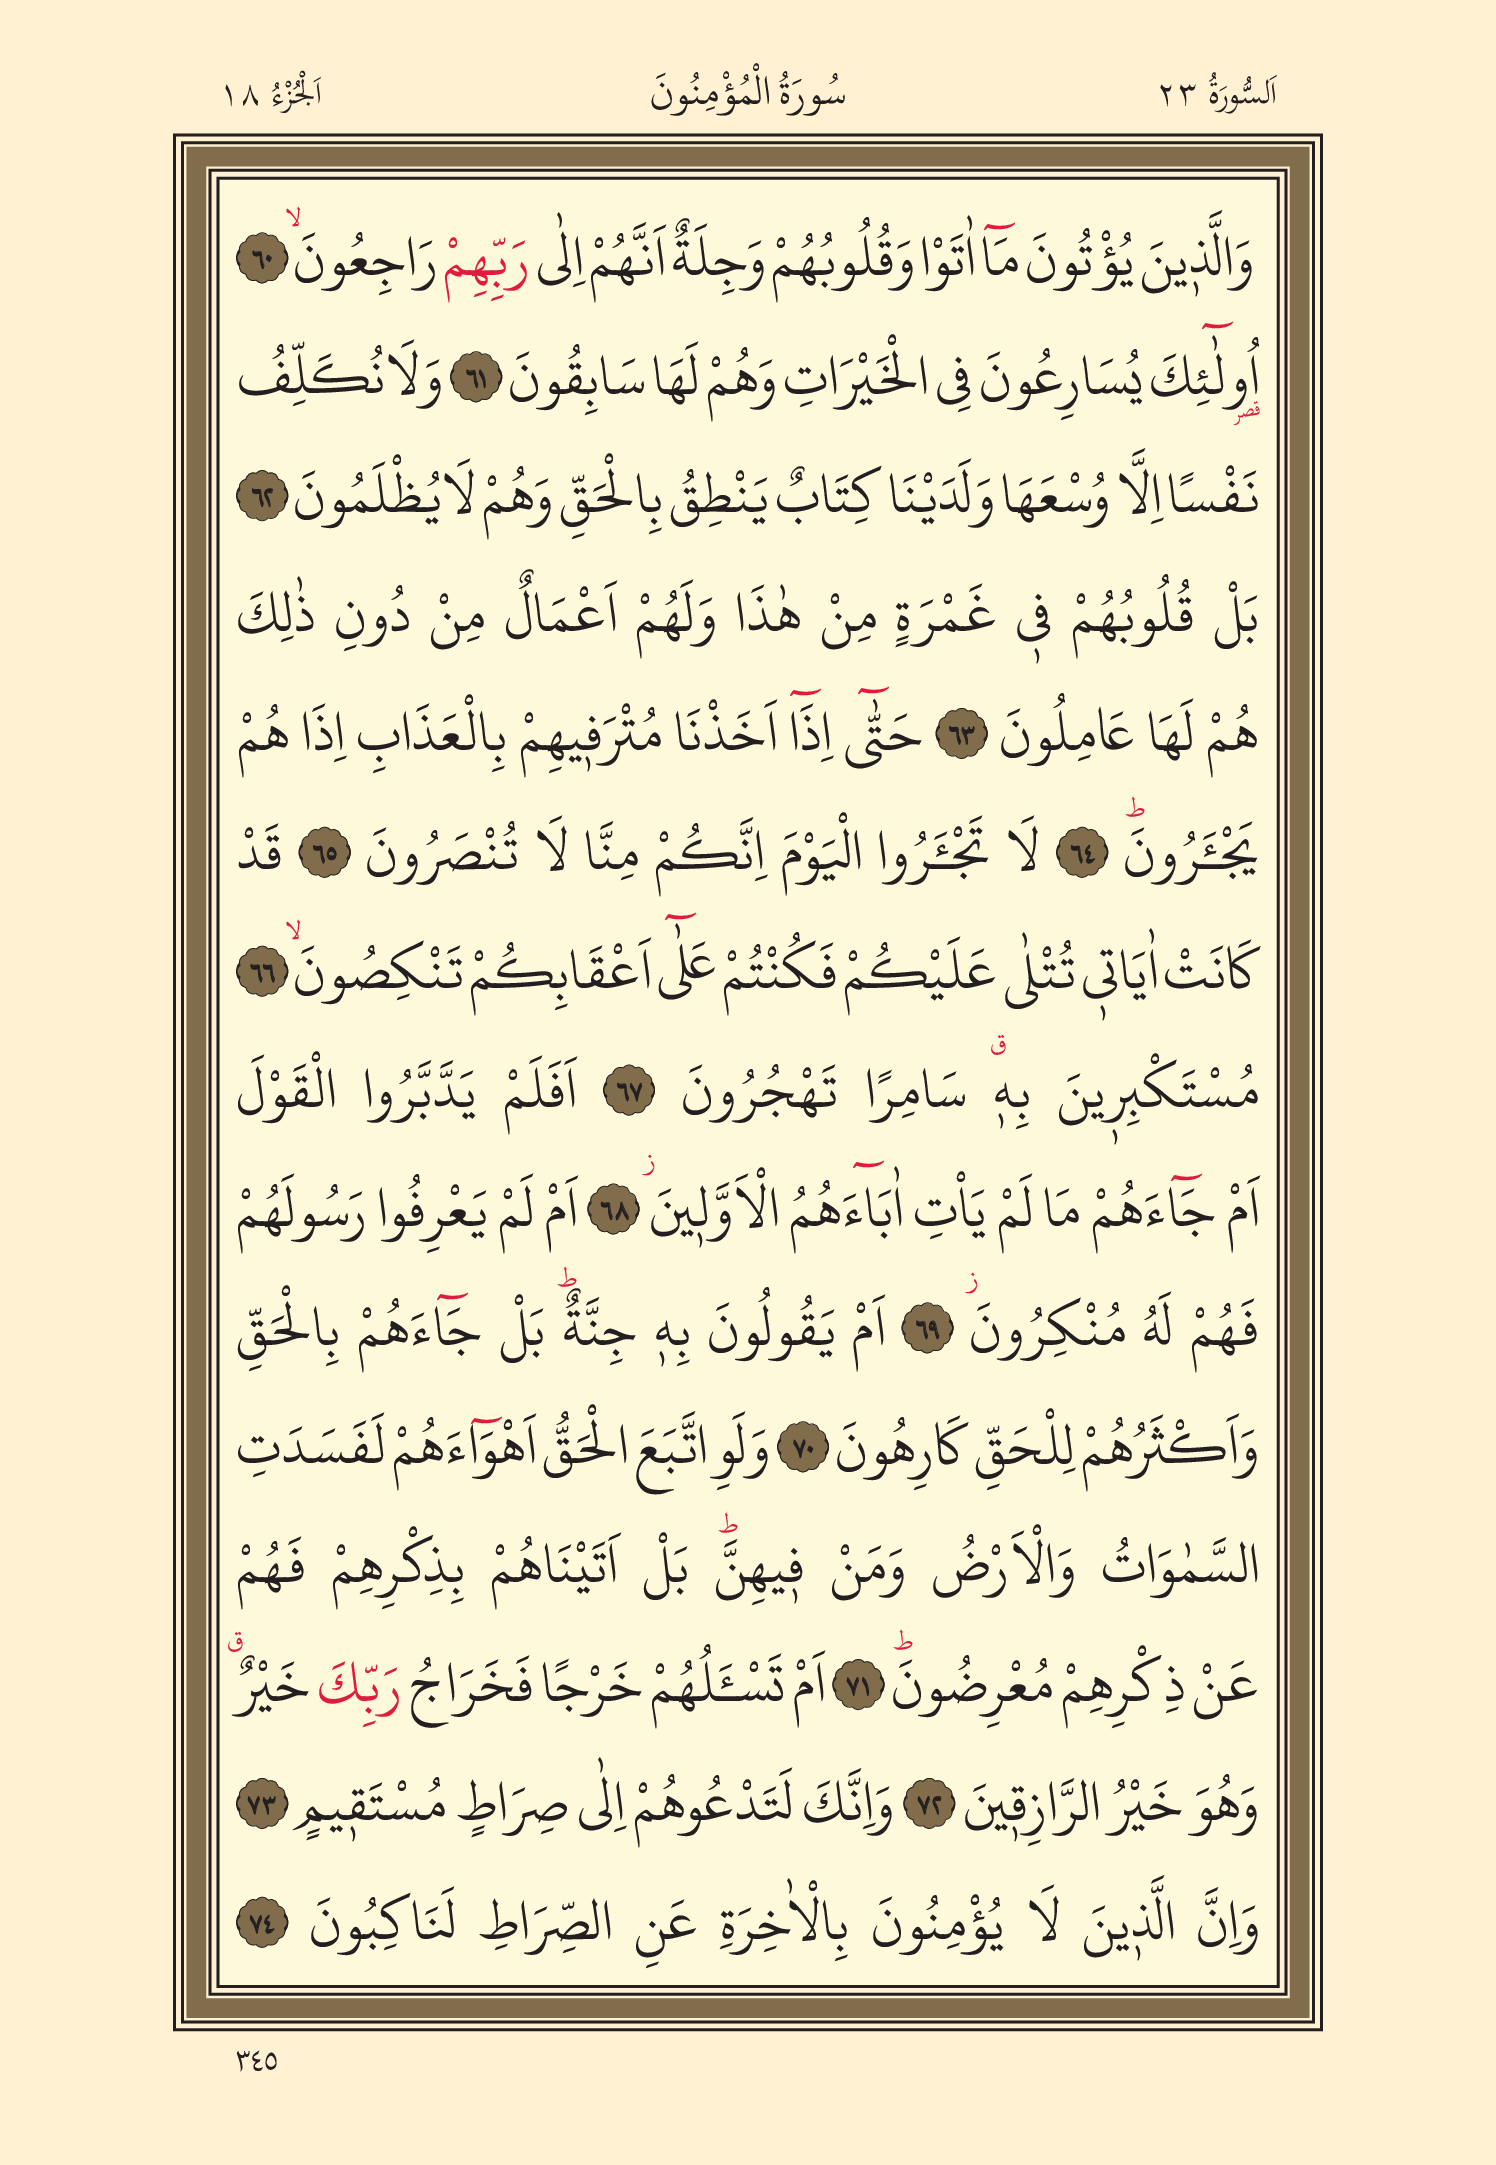 اَلسُّورَةُ ٢٣ سُورَةُ الْمُؤْمِنُونَ اَلْجُزْءُ ١٨
وَالَّذ۪ينَ يُؤْتُونَ مَٓا اٰتَوْا وَقُلُوبُهُمْ وَجِلَةٌ اَنَّهُمْ اِلٰى رَبِّهِمْ رَاجِعُونَۙ ٦٠
اُو۬لٰٓئِكَ يُسَارِعُونَ فِى الْخَيْرَاتِ وَهُمْ لَهَا سَابِقُونَ ٦١ وَلَا نُكَلِّفُ
قصر
نَفْسًا اِلَّا وُسْعَهَا وَلَدَيْنَا كِتَابٌ يَنْطِقُ بِالْحَقِّ وَهُمْ لَا يُظْلَمُونَ ٦٢
بَلْ قُلُوبُهُمْ ف۪ي غَمْرَةٍ مِنْ هٰذَا وَلَهُمْ اَعْمَالٌ مِنْ دُونِ ذٰلِكَ
هُمْ لَهَا عَامِلُونَ ٦٣ حَتّٰٓى اِذَٓا اَخَذْنَا مُتْرَف۪يهِمْ بِالْعَذَابِ اِذَا هُمْ
يَجْـَٔرُونَۜ ٦٤ لَا تَجْـَٔرُوا الْيَوْمَ اِنَّكُمْ مِنَّا لَا تُنْصَرُونَ ٦٥ قَدْ
كَانَتْ اٰيَات۪ي تُتْلٰى عَلَيْكُمْ فَكُنْتُمْ عَلٰٓى اَعْقَابِكُمْ تَنْكِصُونَۙ ٦٦
مُسْتَكْبِر۪ينَ بِه۪ۗ سَامِرًا تَهْجُرُونَ ٦٧ اَفَلَمْ يَدَّبَّرُوا الْقَوْلَ
اَمْ جَٓاءَهُمْ مَا لَمْ يَاْتِ اٰبَٓاءَهُمُ الْاَوَّل۪ينَۘ ٦٨ اَمْ لَمْ يَعْرِفُوا رَسُولَهُمْ
فَهُمْ لَهُ مُنْكِرُونَۘ ٦٩ اَمْ يَقُولُونَ بِه۪ جِنَّةٌۜ بَلْ جَٓاءَهُمْ بِالْحَقِّ
وَاَكْثَرُهُمْ لِلْحَقِّ كَارِهُونَ ٧٠ وَلَوِ اتَّبَعَ الْحَقُّ اَهْوَٓاءَهُمْ لَفَسَدَتِ
السَّمٰوَاتُ وَالْاَرْضُ وَمَنْ ف۪يهِنَّۜ بَلْ اَتَيْنَاهُمْ بِذِكْرِهِمْ فَهُمْ
عَنْ ذِكْرِهِمْ مُعْرِضُونَۜ ٧١ اَمْ تَسْـَٔلُهُمْ خَرْجًا فَخَرَاجُ رَبِّكَ خَيْرٌۗ
وَهُوَ خَيْرُ الرَّازِق۪ينَ ٧٢ وَاِنَّكَ لَتَدْعُوهُمْ اِلٰى صِرَاطٍ مُسْتَق۪يمٍ ٧٣
وَاِنَّ الَّذ۪ينَ لَا يُؤْمِنُونَ بِالْاٰخِرَةِ عَنِ الصِّرَاطِ لَنَاكِبُونَ ٧٤
٣٤٥